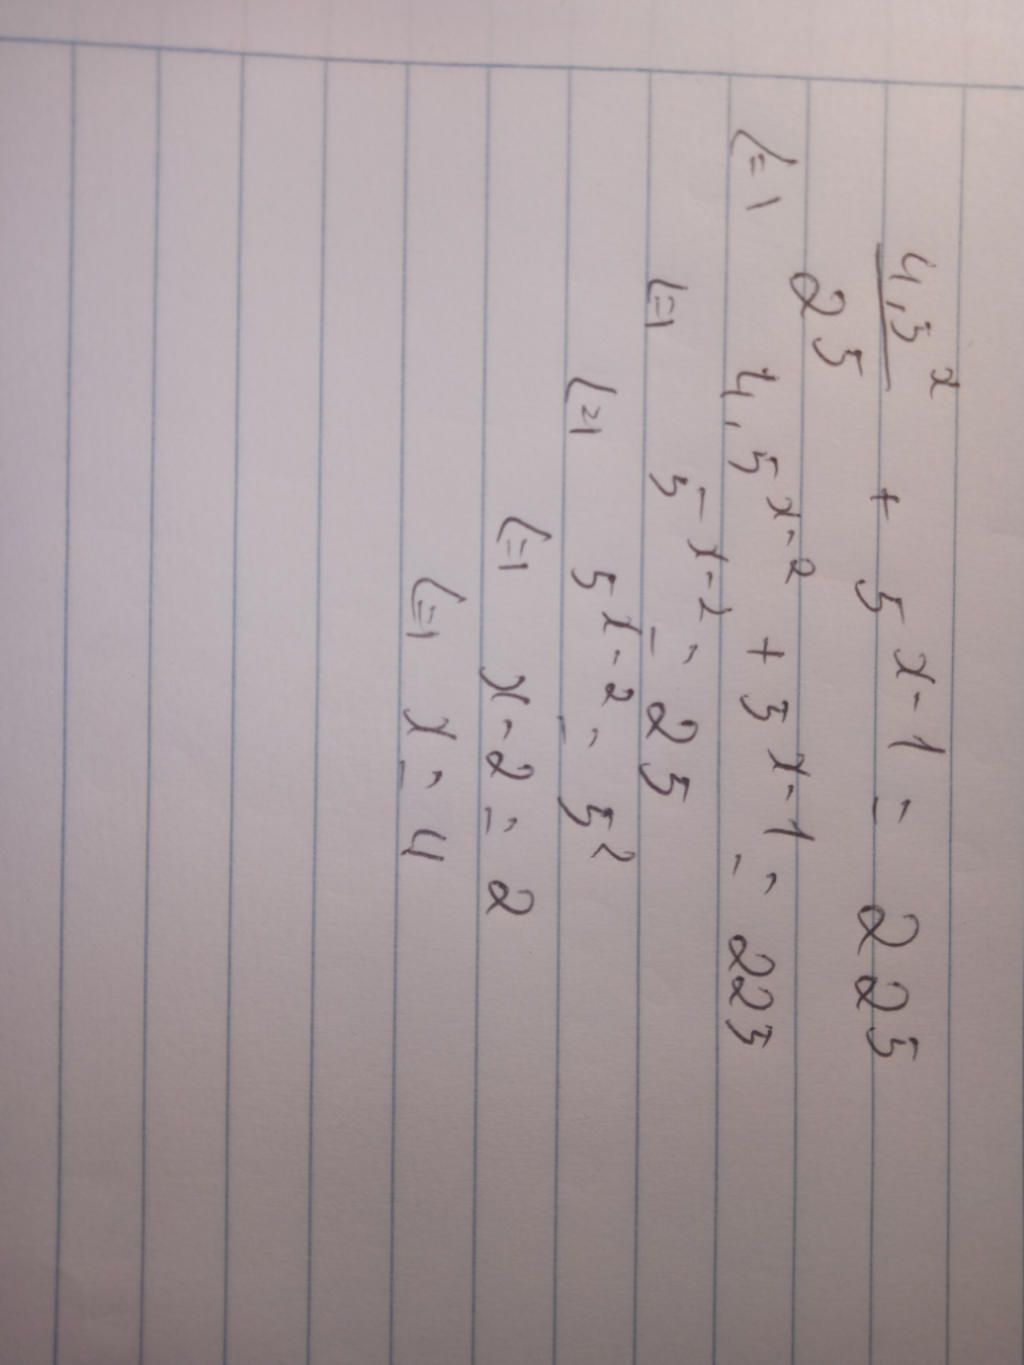 4.5^x/25 + 5^{x-1} = 225
<=> 4.5^{x-2} + 5^{x-1} = 225
<=> 5^{x-2} = 25
<=> 5^{x-2} = 5^2
<=> x-2 = 2
<=> x = 4